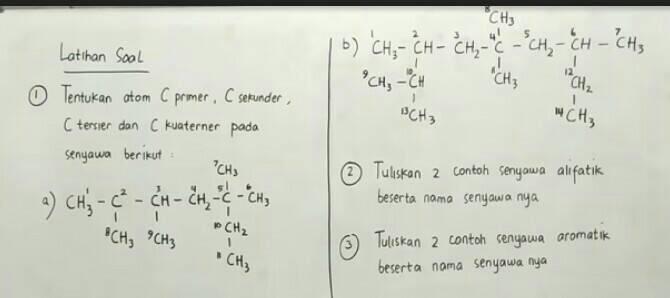 Latihan Soal
① Tentukan atom C primer, C sekunder,
C tersier dan C kuaterner pada
senyawa berikut :
⁷CH₃
a) CH₃¹ - C² - ³CH - ⁴CH₂ - ⁵C - ⁶CH₃
⁸CH₃ ⁹CH₃ ¹⁰CH₂
¹¹CH₃
⁸CH₃
b) ¹CH₃ - ²CH - ³CH₂ - ⁴C - ⁵CH₂ - ⁶CH - ⁷CH₃
⁹CH₃ - ¹⁰CH ¹¹CH₃ ¹²CH₂
¹³CH₃ ¹⁴CH₃
② Tuliskan 2 contoh senyawa alifatik
beserta nama senyawa nya
③ Tuliskan 2 contoh senyawa aromatik
beserta nama senyawa nya